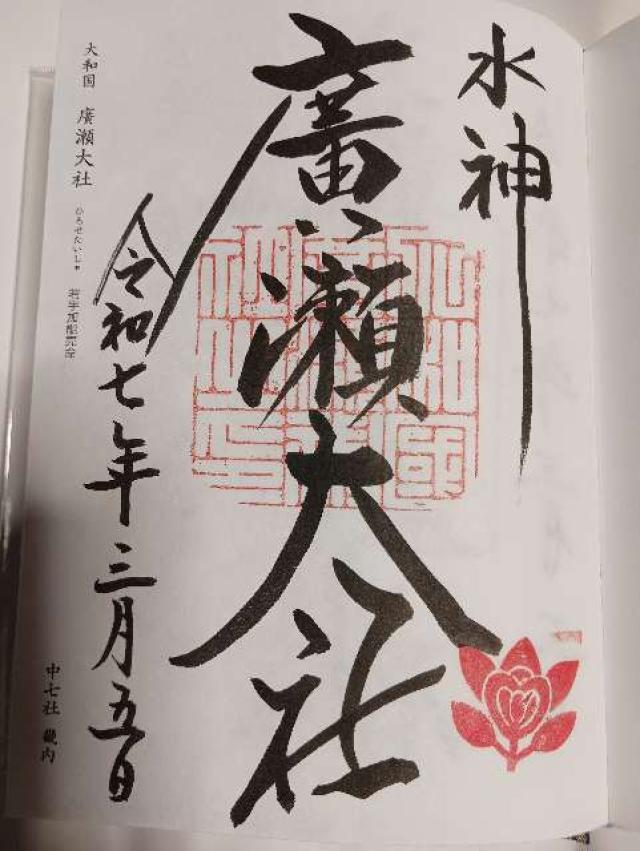 水神
廣瀬大社
令和七年三月五日
大和国 廣瀬大社 ひろせたいしゃ 若宇加能売命
中七社 畿内